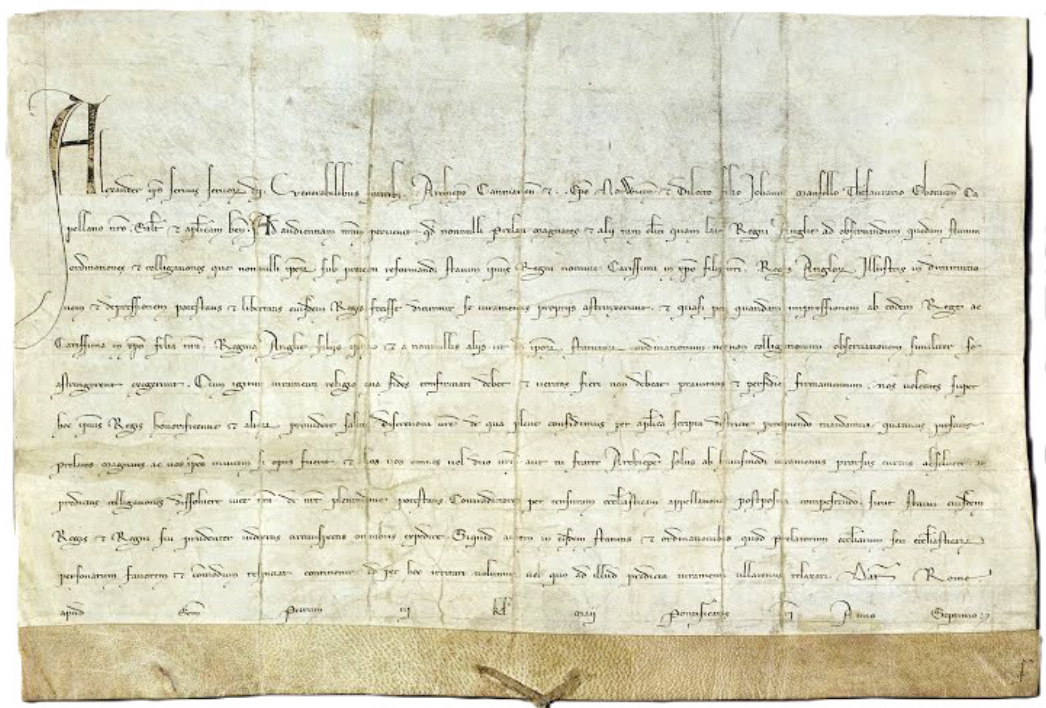 Alexander eps servus servoz dei. Venerabilibus fratribz . . Archiepo Cantuarien et . . Epo Norwicen et Dilecto filio Johanni Mansello Thesaurario Eboracen Ca
pellano nro. Salt et aplicam ben. Ad audientiam nram pervenit qd nonnulli prelati magnates et alii tam clici quam laici Regni Anglie ad observandum quedam statuta
ordinationes et colligationes que nonnulli ipoz sub pretextu reformandi statum ipius Regni nomine Carissimi in xpo filii nri . . Regis Angloz Illustris in diminutio
nem et depressionem potestatis et libertatis eiusdem Regis fecisse dicuntur se iuramentis propriis astrinxerunt et quasi per quandam impressionem ab eodem Rege ac
Carissima in xpo filia nra . . Regina Anglie filiis et a nonnullis aliis ut ad ipoz statutoz ordinationum necnon colligationum observationem similiter se
astringerent exegerunt. Cum igitur iuramenti religio qua fides confirmari debet et veritas fieri non debeat pravitatis et perfidie firmamentum nos volentes super
hoc ipius Regis honorificentie et alioz providere saluti discretioni vre de qua plene confidimus per aplica scripta districte precipiendo mandamus quatinus prefatos
prelatos magnates ac nos omnes vel duo vrm aut tu frater Archiepe solus ab huiusmodi iuramentis prorsus curetis absolvere ac
predictas colligationes dissolvere de nre plenitudine potestatis Contradictores per censuram ecclesiasticam appellatione postposita compescendo sicut statui eiusdem
Regis et Regni seu prudenter videritis circumspectis omnibus expedire. Siquid autem in eisdem statutis et ordinationibus quod prelatorum ecclesiarum seu ecclesiasticaz
personarum favorem et comodum respiciat continetur id per hoc irritari nolumus nec quo ad illud predicta iuramenta ullatenus relaxari. Dat Rome
apud Scm Petrum iii kl maii Pontificatus nri Anno Septimo